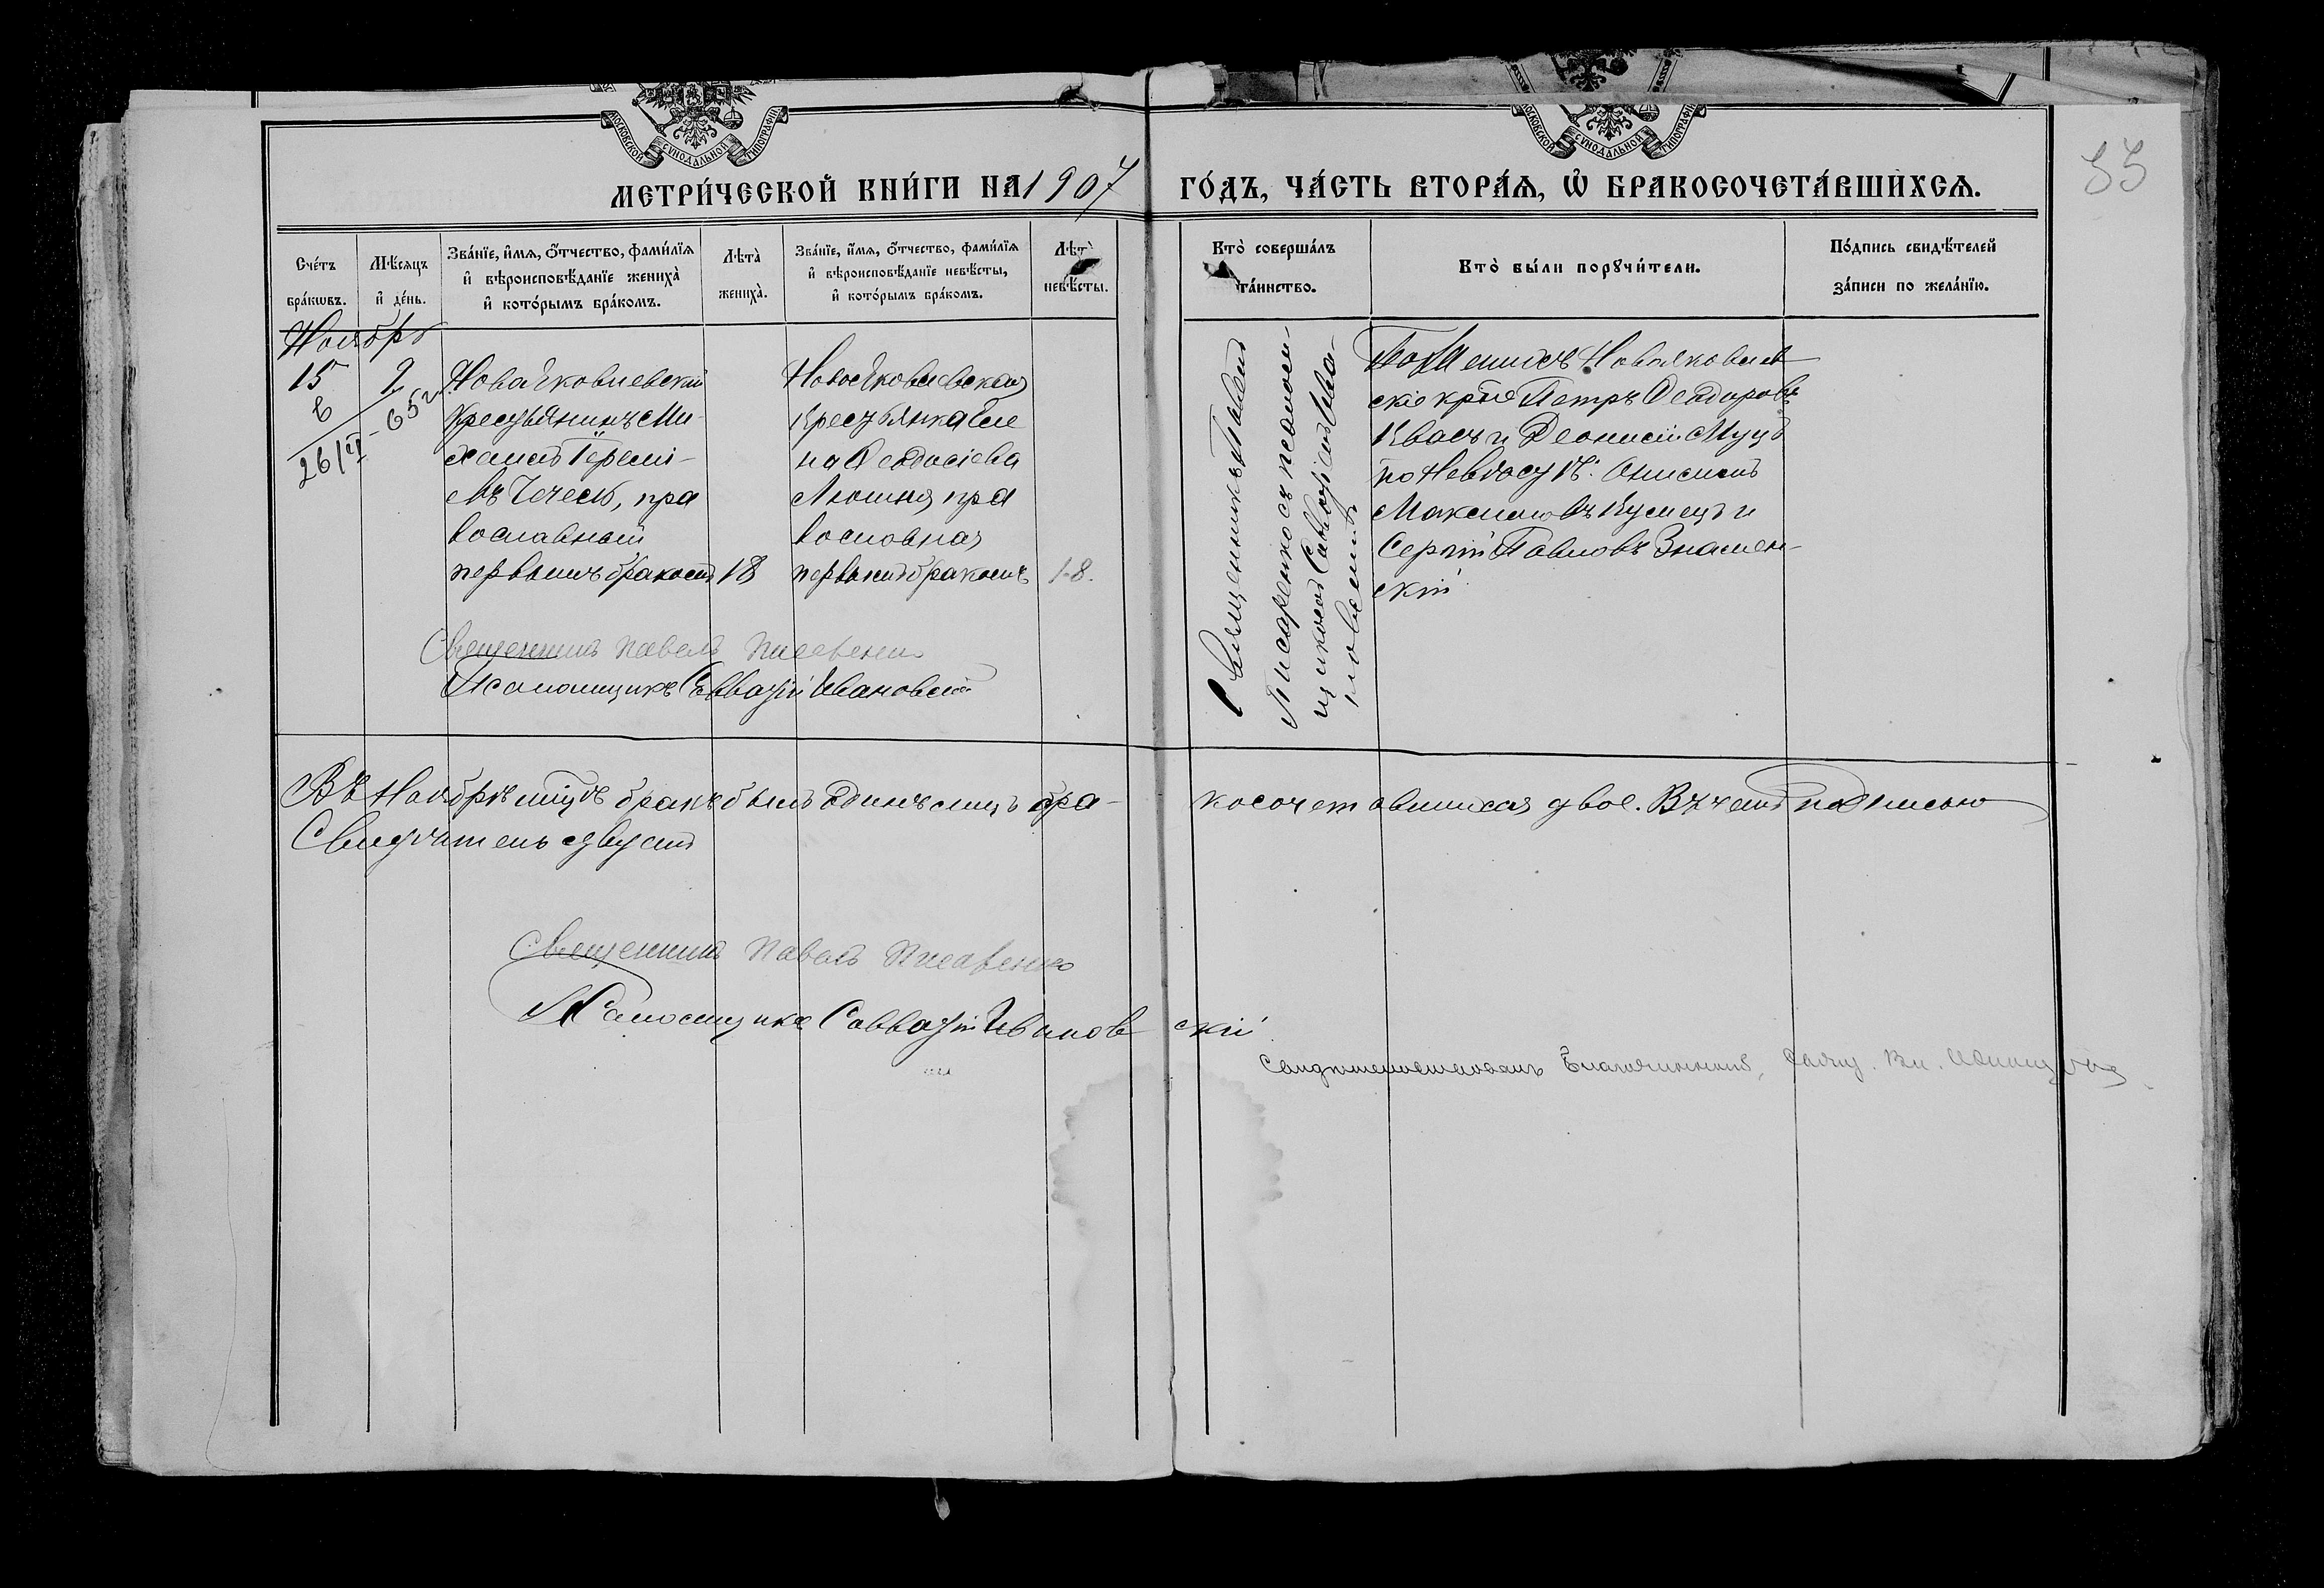 МОСКОВСКОЙ СѴНОДАЛЬНОЙ ТИПОГРАФІИ
МОСКОВСКОЙ СѴНОДАЛЬНОЙ ТИПОГРАФІИ
МЕТРИ́ЧЕСКОЙ КНИ́ГИ НА 1907
ГО́ДЪ, ЧА́СТЬ ВТОРА́Ѧ, Ѡ҆ БРАКОСОЧЕТА́ВШИХСѦ.
33
Сче́тъ бра́кѡвъ.
Мѣ́сѧцъ и҆ де́нь.
Зва́нїе, и҆́мѧ, ѻ҆́тчество, фами́лїѧ
и҆ вѣроисповѣ́данїе жениха̀
и҆ кото́рымъ бра́комъ.
Лѣта̀ жениха̀.
Зва́нїе, и҆́мѧ, ѻ҆́тчество, фами́лїѧ
и҆ вѣроисповѣ́данїе невѣ́сты,
и҆ кото́рымъ бра́комъ.
Лѣта̀ невѣ́сты.
Кто̀ соверша́лъ та́инство.
Кто̀ бы́ли порꙋчи́тели.
По́дпись свидѣ́телей
за́писи по жела́нїю.
Ноябрь
15
2
Новояковлевскій
крестьянинъ Ми-
хаилъ
православный
первымъ бракомъ 18
Новояковлевская
крестьянка Еле
на Феодосіева
пра
вославная
первымъ бракомъ 18.
Священникъ Павелъ
Писаренко съ псалом-
щикомъ Савватіемъ Ива-
новскимъ
По Женихѣ Новояковлев
скіе кр-не Петръ Феодоровъ
Квасъ и Деонисій
по Невѣстѣ: Онисимъ
Максимовъ и
Сергій Павловъ Знамен-
скій
Священникъ Павелъ Писаренко
Псаломщикъ Савватій Ивановскій
Въ Ноябрѣ мѣсяцѣ бракъ былъ одинъ лицъ бра-
косочетавшихся двое. Въ чемъ подписью
Свидѣтельствуемъ
Священникъ Павелъ Писаренко
Псаломщикъ Савватій Ивановскій
Свидѣтельствовалъ Благочинный,